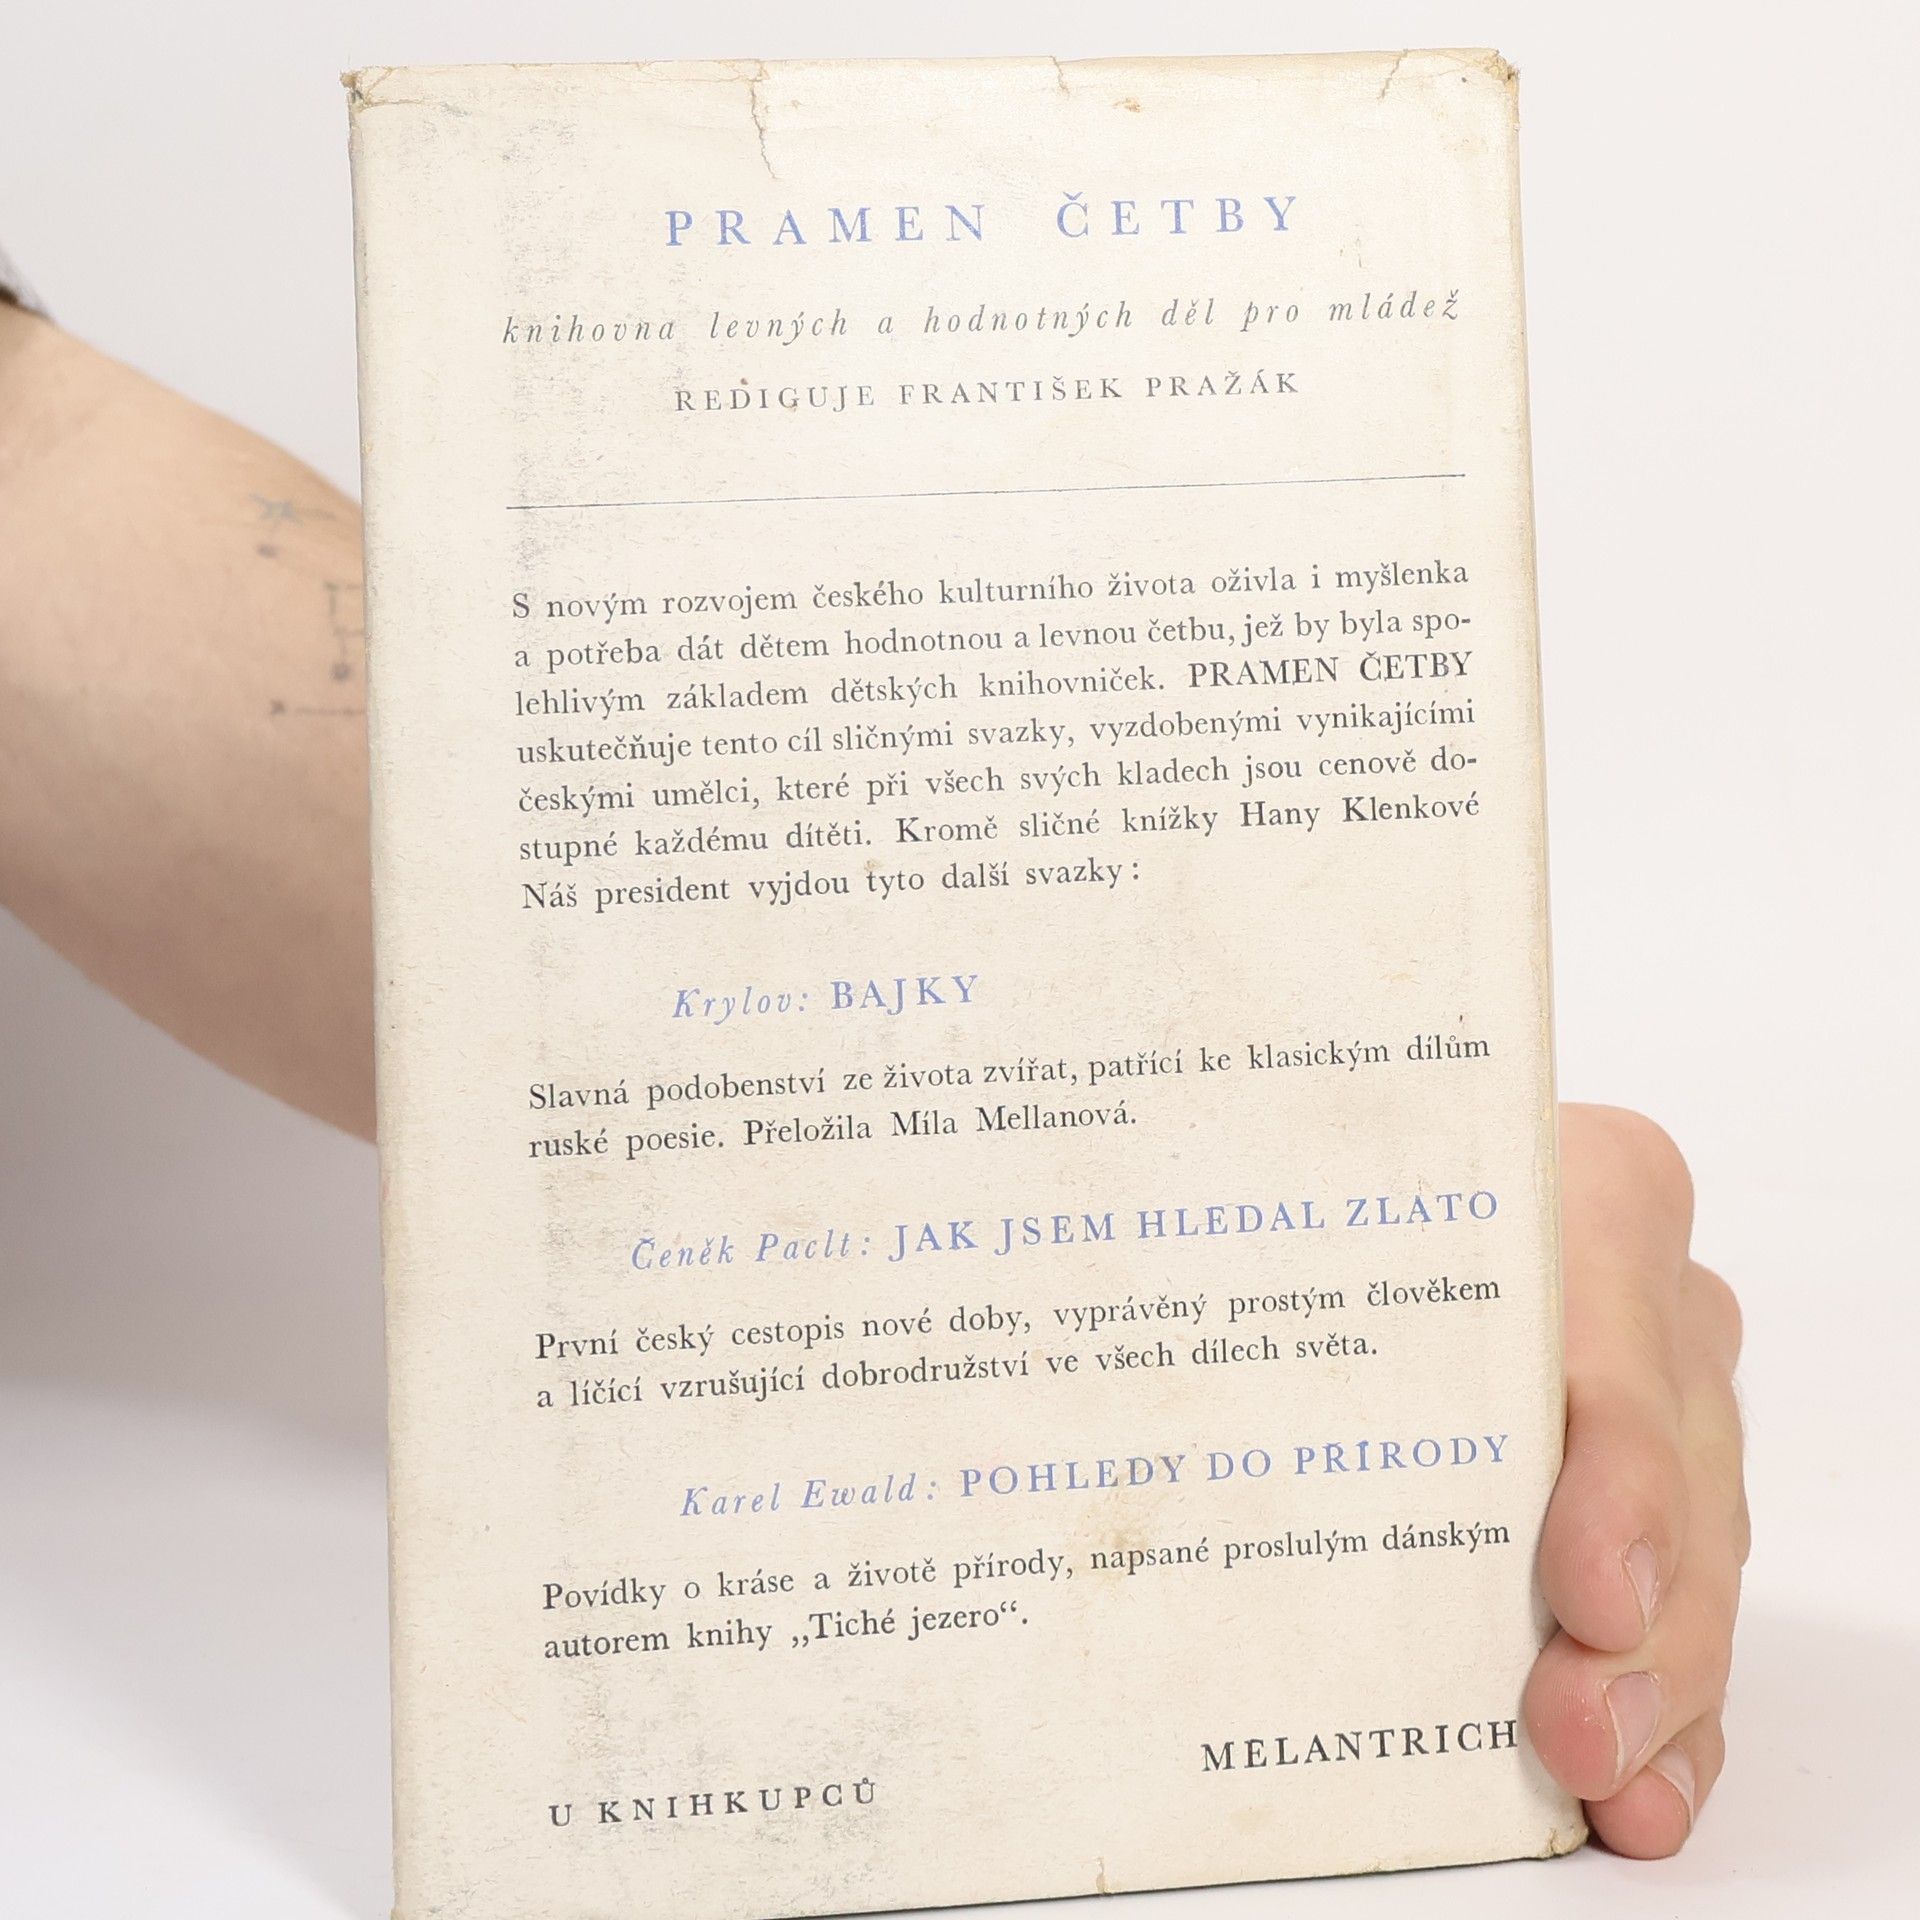 PRAMEN ČETBY
knihovna levných a hodnotných děl pro mládež
REDIGUJE FRANTIŠEK PRAŽÁK
S novým rozvojem českého kulturního života oživla i myšlenka
a potřeba dát dětem hodnotnou a levnou četbu, jež by byla spo-
lehlivým základem dětských knihovniček. PRAMEN ČETBY
uskutečňuje tento cíl sličnými svazky, vyzdobenými vynikajícími
českými umělci, které při všech svých kladech jsou cenově do-
stupné každému dítěti. Kromě sličné knížky Hany Klenkové
Náš president vyjdou tyto další svazky:
Krylov: BAJKY
Slavná podobenství ze života zvířat, patřící ke klasickým dílům
ruské poesie. Přeložila Míla Mellanová.
Čeněk Paclt: JAK JSEM HLEDAL ZLATO
První český cestopis nové doby, vyprávěný prostým člověkem
a líčící vzrušující dobrodružství ve všech dílech světa.
Karel Ewald: POHLEDY DO PŘÍRODY
Povídky o kráse a životě přírody, napsané proslulým dánským
autorem knihy „Tiché jezero“.
U KNIHKUPCŮ MELANTRICH